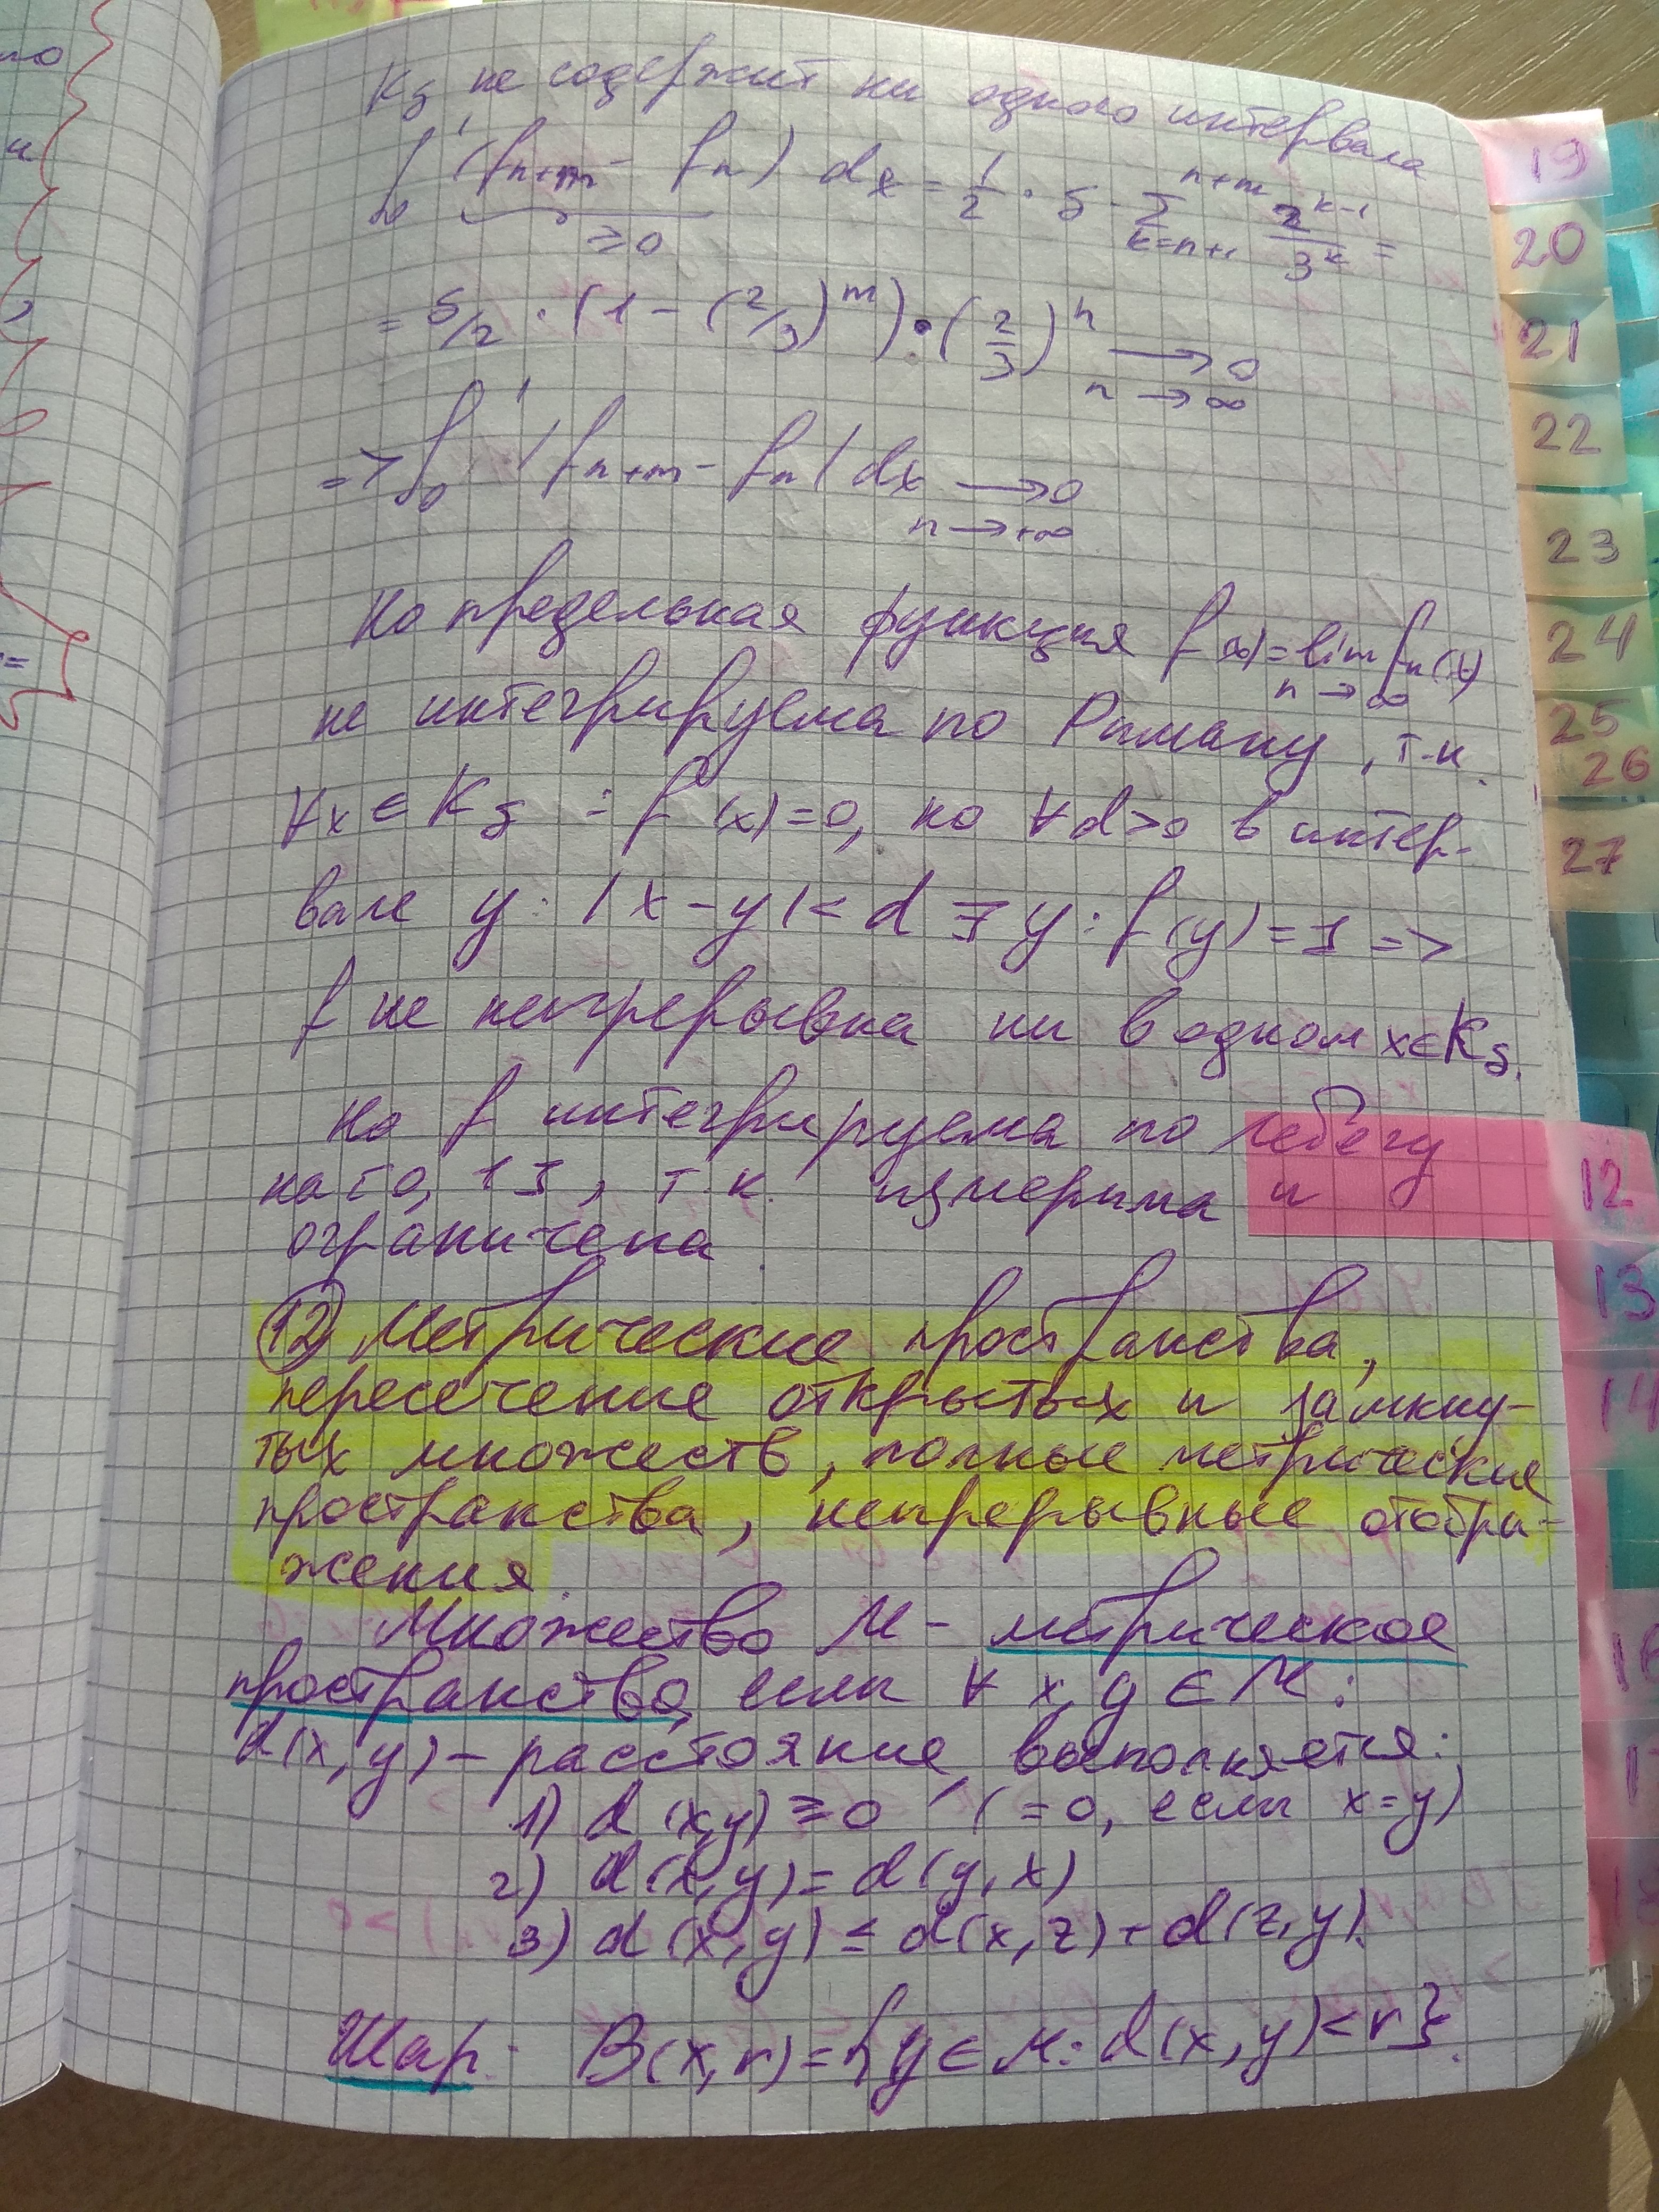 K_δ не содержит ни одного интервала
∫₀¹ (f_{n+m} - f_n) dx = 1/2 · δ · Σ_{k=n+1}^{n+m} 2^{k-1}/3^k =
≥0
= δ/2 · (1 - (2/3)^m) · (2/3)^n → 0
n → ∞
=> ∫₀¹ |f_{n+m} - f_n| dx → 0
n → +∞
Но предельная функция f(x) = lim f_n(x)
n → ∞
не интегрируема по Риману, т.к.
∀x ∈ K_δ : f(x)=0, но ∀d>0 в интер-
вале y: |x-y|< d ∃ y : f(y)=1 =>
f не непрерывна ни в одном x∈K_δ.
Но f интегрируема по Лебегу
на [0, 1], т.к. измерима и
ограничена.
(12) Метрические пространства,
пересечение открытых и замкну-
тых множеств, полные метрические
пространства, непрерывные отобра-
жения.
Множество M - метрическое
пространство, если ∀ x, y ∈ M:
d(x, y) - расстояние, выполняется:
1) d(x,y) ≥ 0 (=0, если x=y)
2) d(x,y) = d(y,x)
3) d(x,y) ≤ d(x,z) + d(z,y).
Шар: B(x,r) = {y ∈ M: d(x,y)<r}.
19
20
21
22
23
24
25
26
27
12
13
14
16